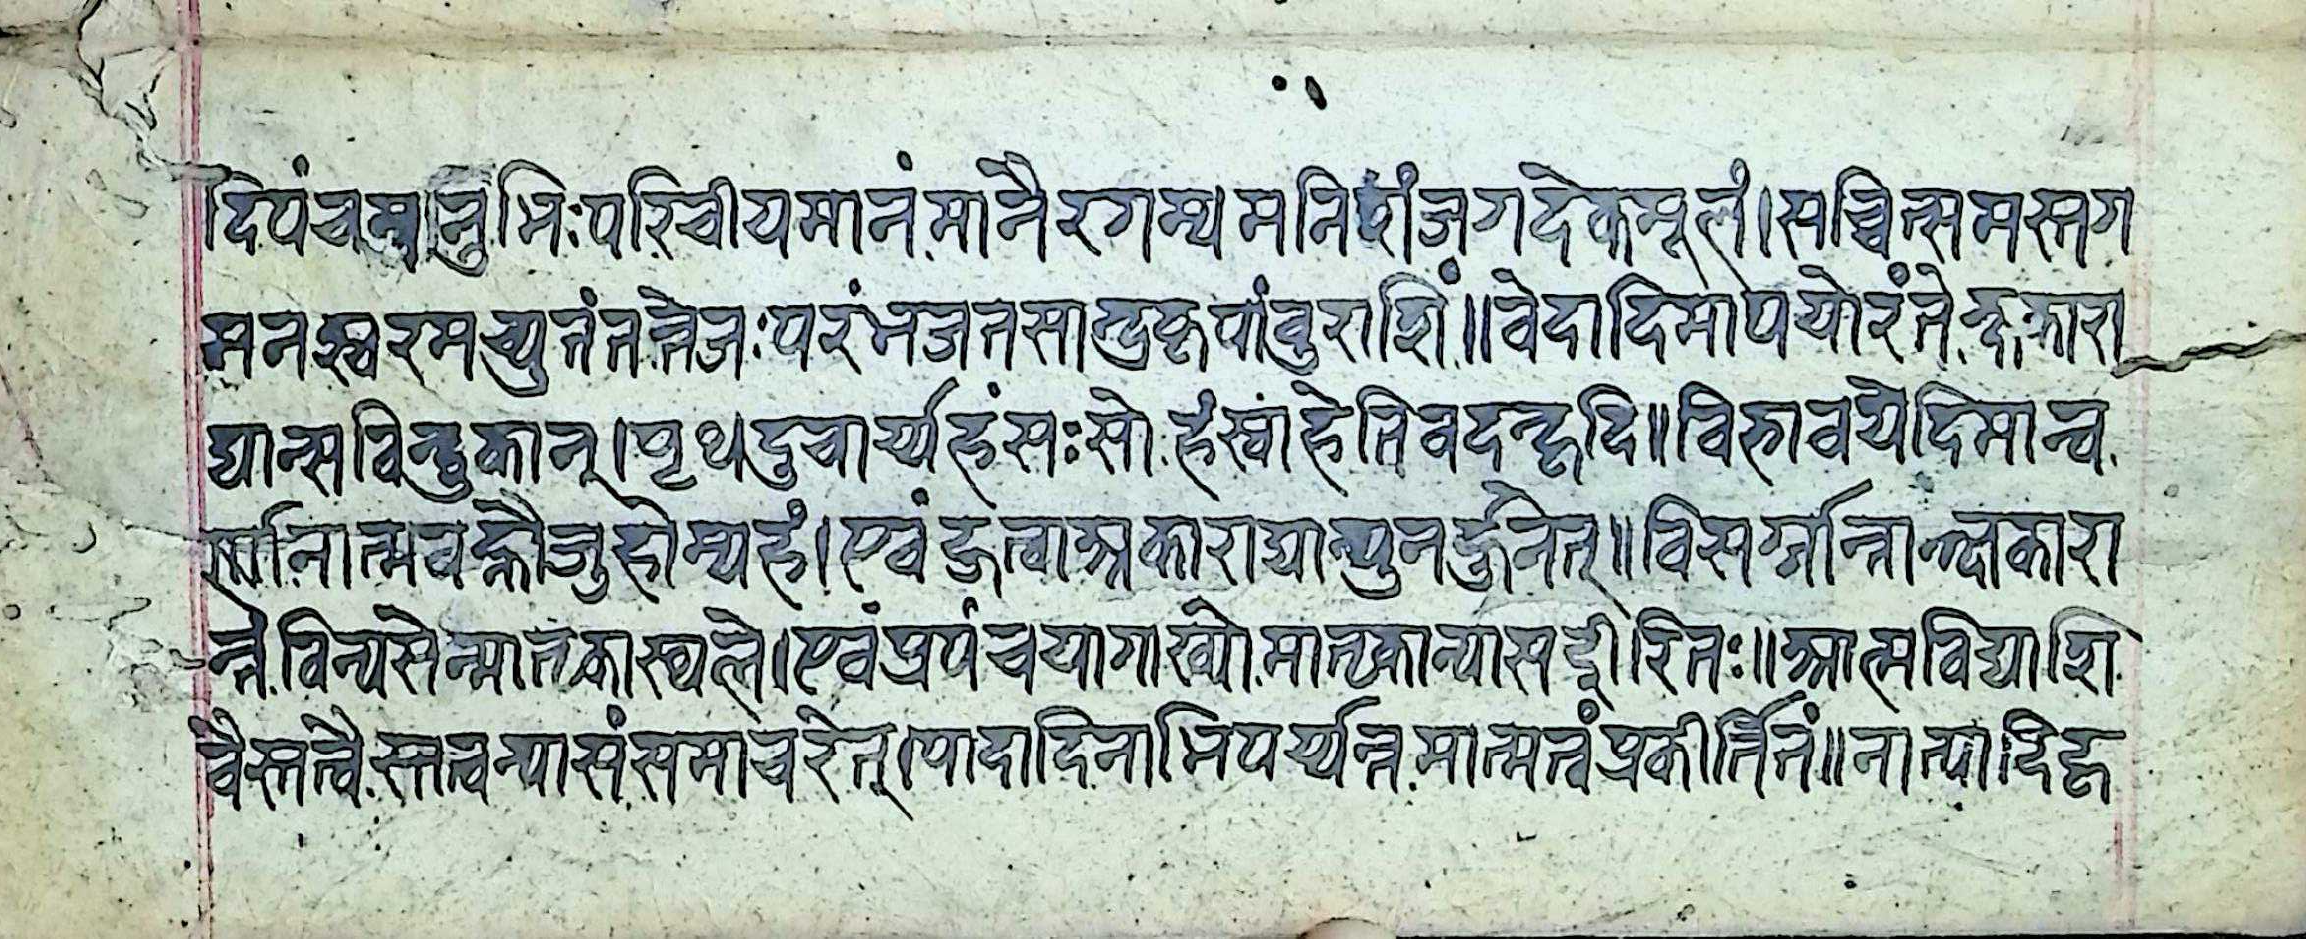 दिपंचमनुभिःपरिचीयमानंमानैरगम्यमनिशंजगदेकमूलं।सच्चित्समस्तग
मनश्वरमच्युतंतत्तेजःपरंभजतसान्द्रकृपांवुराशिं॥वेदादिमापयोरंतेक्षकारा
द्यान्सविन्दुकान्।पृथगुचार्य्यहंसःसोहंस्वाहेतिवदन्हृदि॥विभावयेदिमान्व
र्णानात्मवह्नौजुहोम्यहं।एवंहुत्वाअकाराद्यान्पुनर्हुनेत्॥विसर्गान्तान्क्षकारा
न्तेविन्यसेन्मातृकास्थले।एवंप्रपंचयागाख्योमातृकान्यासईरितः॥आत्मविद्याशि
वैस्तत्वैस्तत्वन्यासंसमाचरेत्।पादादिनाभिपर्य्यन्तमात्मतत्वंप्रकीर्तितं॥नाभ्यादिहृ